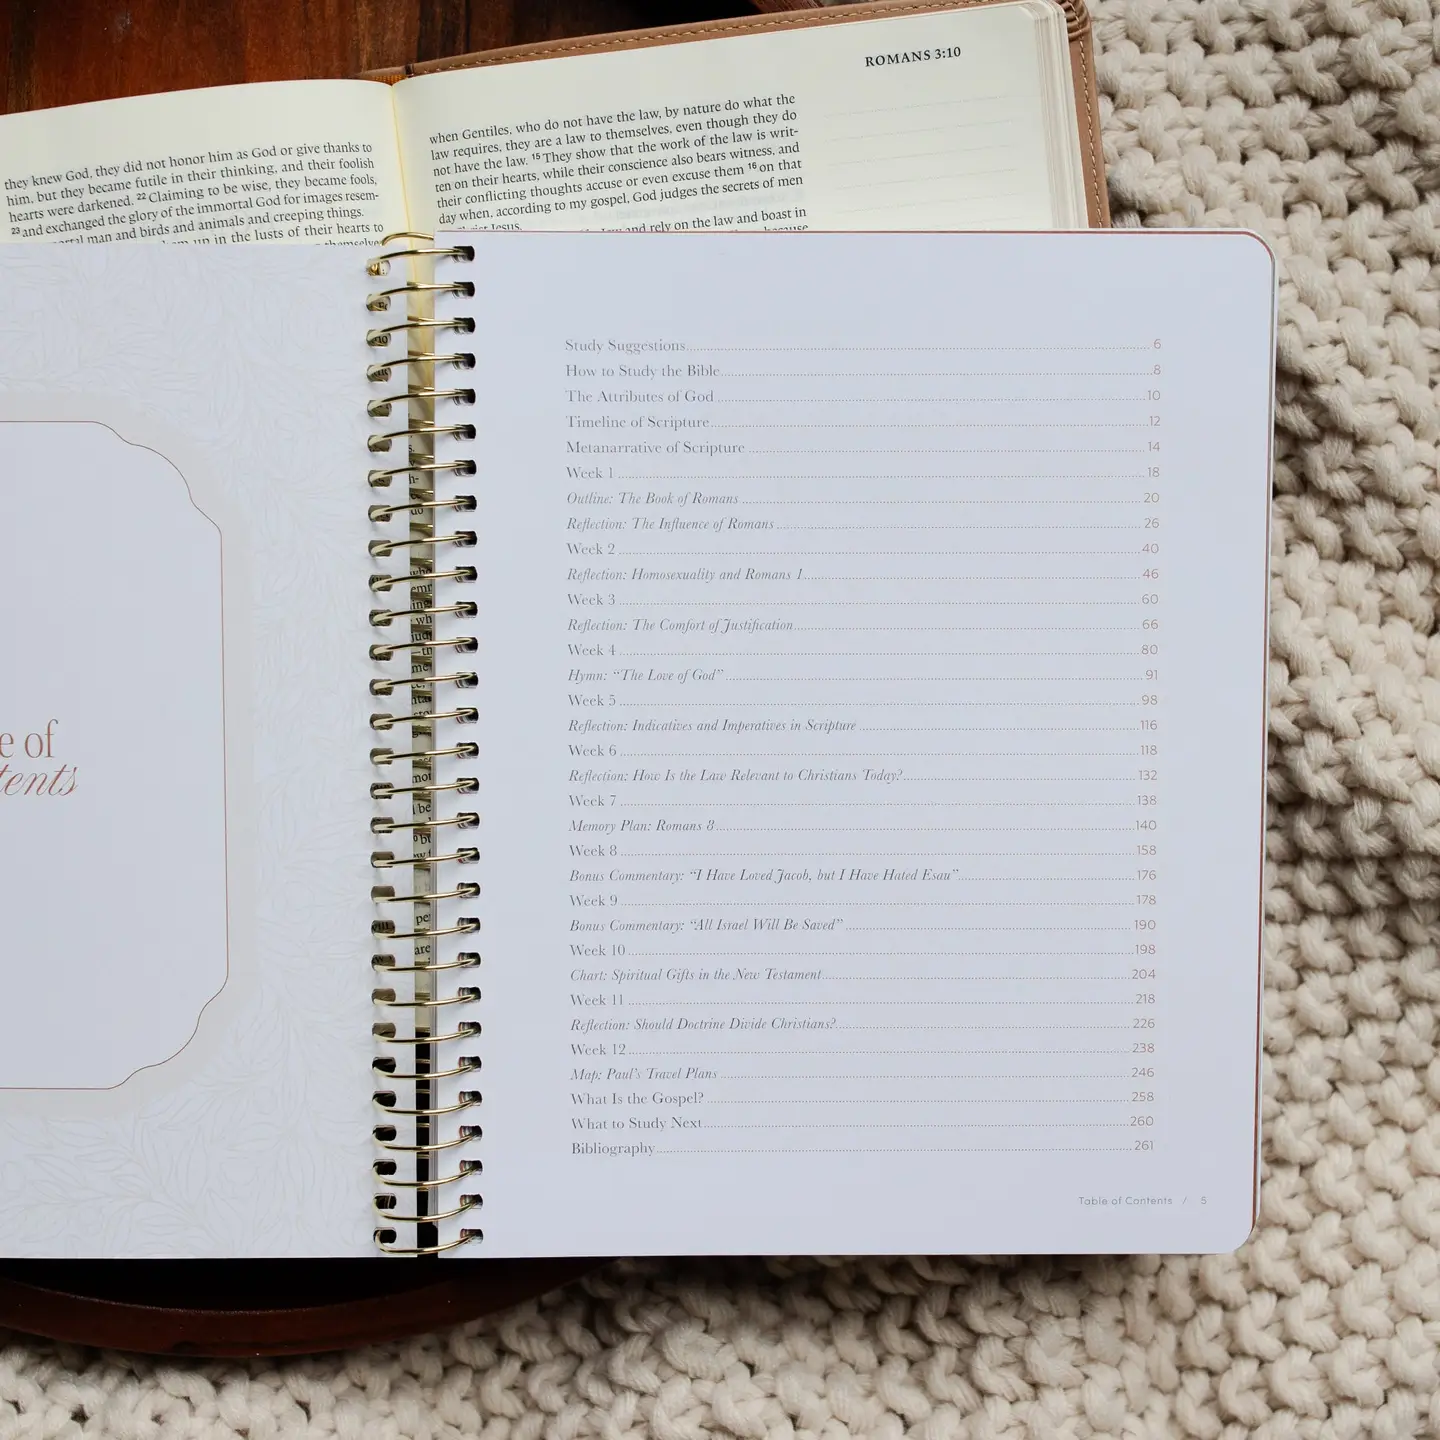 ROMANS 3:10
they knew God, they did not honor him as God or give thanks to
him, but they became futile in their thinking, and their foolish
hearts were darkened. 22 Claiming to be wise, they became fools,
23 and exchanged the glory of the immortal God for images resem-
man and birds and animals and creeping things.
up in the lusts of their hearts to
themselves
when Gentiles, who do not have the law, by nature do what the
law requires, they are a law to themselves, even though they do
not have the law. 15 They show that the work of the law is writ-
ten on their hearts, while their conscience also bears witness, and
their conflicting thoughts accuse or even excuse them 16 on that
day when, according to my gospel, God judges the secrets of men
Jesus.
and rely on the law and boast in
because
e of
tents
Study Suggestions 6
How to Study the Bible 8
The Attributes of God 10
Timeline of Scripture 12
Metanarrative of Scripture 14
Week 1 18
Outline: The Book of Romans 20
Reflection: The Influence of Romans 26
Week 2 40
Reflection: Homosexuality and Romans 1 46
Week 3 60
Reflection: The Comfort of Justification 66
Week 4 80
Hymn: “The Love of God” 91
Week 5 98
Reflection: Indicatives and Imperatives in Scripture 116
Week 6 118
Reflection: How Is the Law Relevant to Christians Today? 132
Week 7 138
Memory Plan: Romans 8 140
Week 8 158
Bonus Commentary: “I Have Loved Jacob, but I Have Hated Esau” 176
Week 9 178
Bonus Commentary: “All Israel Will Be Saved” 190
Week 10 198
Chart: Spiritual Gifts in the New Testament 204
Week 11 218
Reflection: Should Doctrine Divide Christians? 226
Week 12 238
Map: Paul's Travel Plans 246
What Is the Gospel? 258
What to Study Next 260
Bibliography 261
Table of Contents / 5